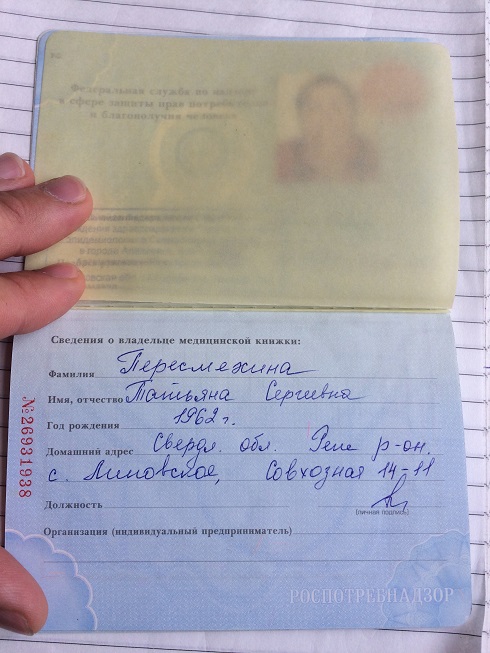 Федеральная служба по надзору
в сфере защиты прав потребителей
и благополучия человека
Сведения о владельце медицинской книжки:
Фамилия Пересмехина
Имя, отчество Татьяна Сергиевна
Год рождения 1962 г.
Домашний адрес Свердл. обл. Реж р-он.
с. Липовское, Совхозная 14-11
Должность
(личная подпись)
Организация (индивидуальный предприниматель)
№26931938
РОСПОТРЕБНАДЗОР